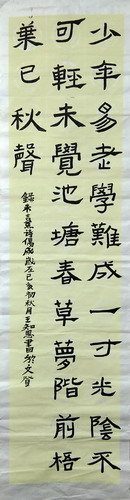 少年易老學難成一寸光陰不
可輕未覺池塘春草夢階前梧
葉已秋聲
錄朱熹詩偶成歲在己亥初秋月王知恩書於文登